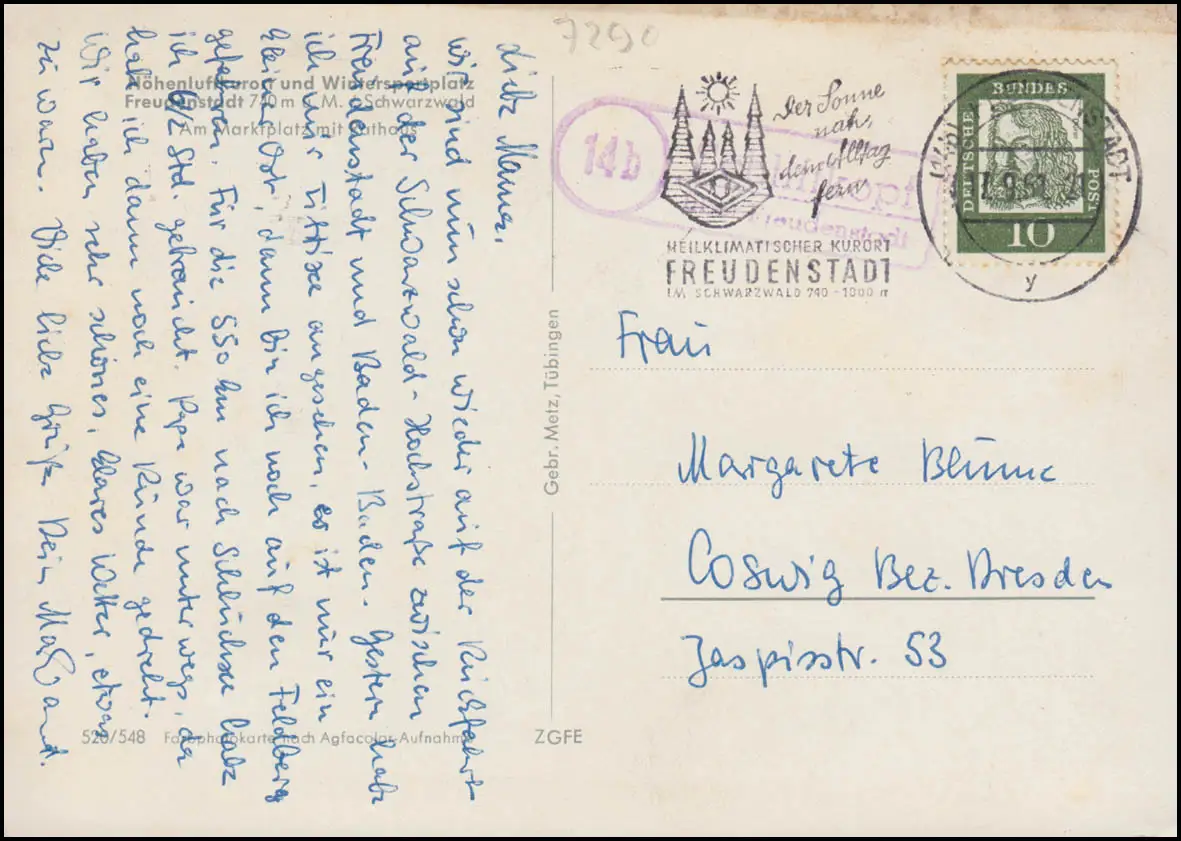 7290
Höhenluftkurort und Wintersportplatz
Freudenstadt 740 m ü. M. Schwarzwald
Am Marktplatz mit Rathaus
Liebe Mama,
wir sind nun schon wieder auf der Rückfahrt
auf der Schwarzwald-Hochstraße zwischen
Freudenstadt und Baden-Baden. Gestern habe
ich mir Titisee angesehen, es ist nur ein
kleiner Ort, dann bin ich noch auf den Feldberg
gefahren. Für die 550 km nach Schluchsee habe
ich 9 1/2 Std. gebraucht. Papa war unterwegs, da
hab ich dann noch eine Runde gedreht.
Wir haben sehr schönes, klares Wetter, etwas
zu warm. Viele liebe Grüße Dein
520/548 Farbphotokarte nach Agfacolor-Aufnahme
ZGFE
Gebr. Metz, Tübingen
14b
Freudenstadt
Der Sonne
nah,
dem Alltag
fern
HEILKLIMATISCHER KURORT
FREUDENSTADT
IM SCHWARZWALD 740 - 1000 m
DEUTSCHE
BUNDES
POST
10
y
Frau
Margarete Blume
Coswig Bez. Dresden
Jaspisstr. 53